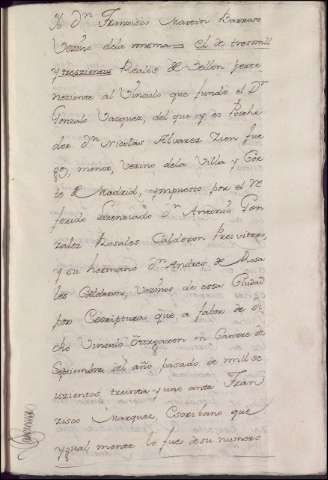 Dn. Francisco Martin Barraso
Vezino dela misma = el de tresmill
y trezientos Reales de Vellon perte-
neziente al Vinculo que fundo el Dr.
Gonzalo Vazquez, del que oy es Posehe-
dor Dn. Nicolas Alvarez Zien fue-
gos, menor, Vezino dela Villa y Cor-
te de Madrid, ympuesto por el Re-
ferido Lizenziado Dn. Antonio Gon-
zalez Rosales Calderon Presvitero,
y su hermano Dn. Andres de Rosa-
les Calderon, Vezinos de esta Ciudad
por Escriptura que a fabor de di-
cho Vinculo otorgaron en Catorze de
Septiembre del año pasado de mill se-
iszientos treinta y uno ante Fran-
zisco Marquez Escribano que
ygual mente lo fue de su numero